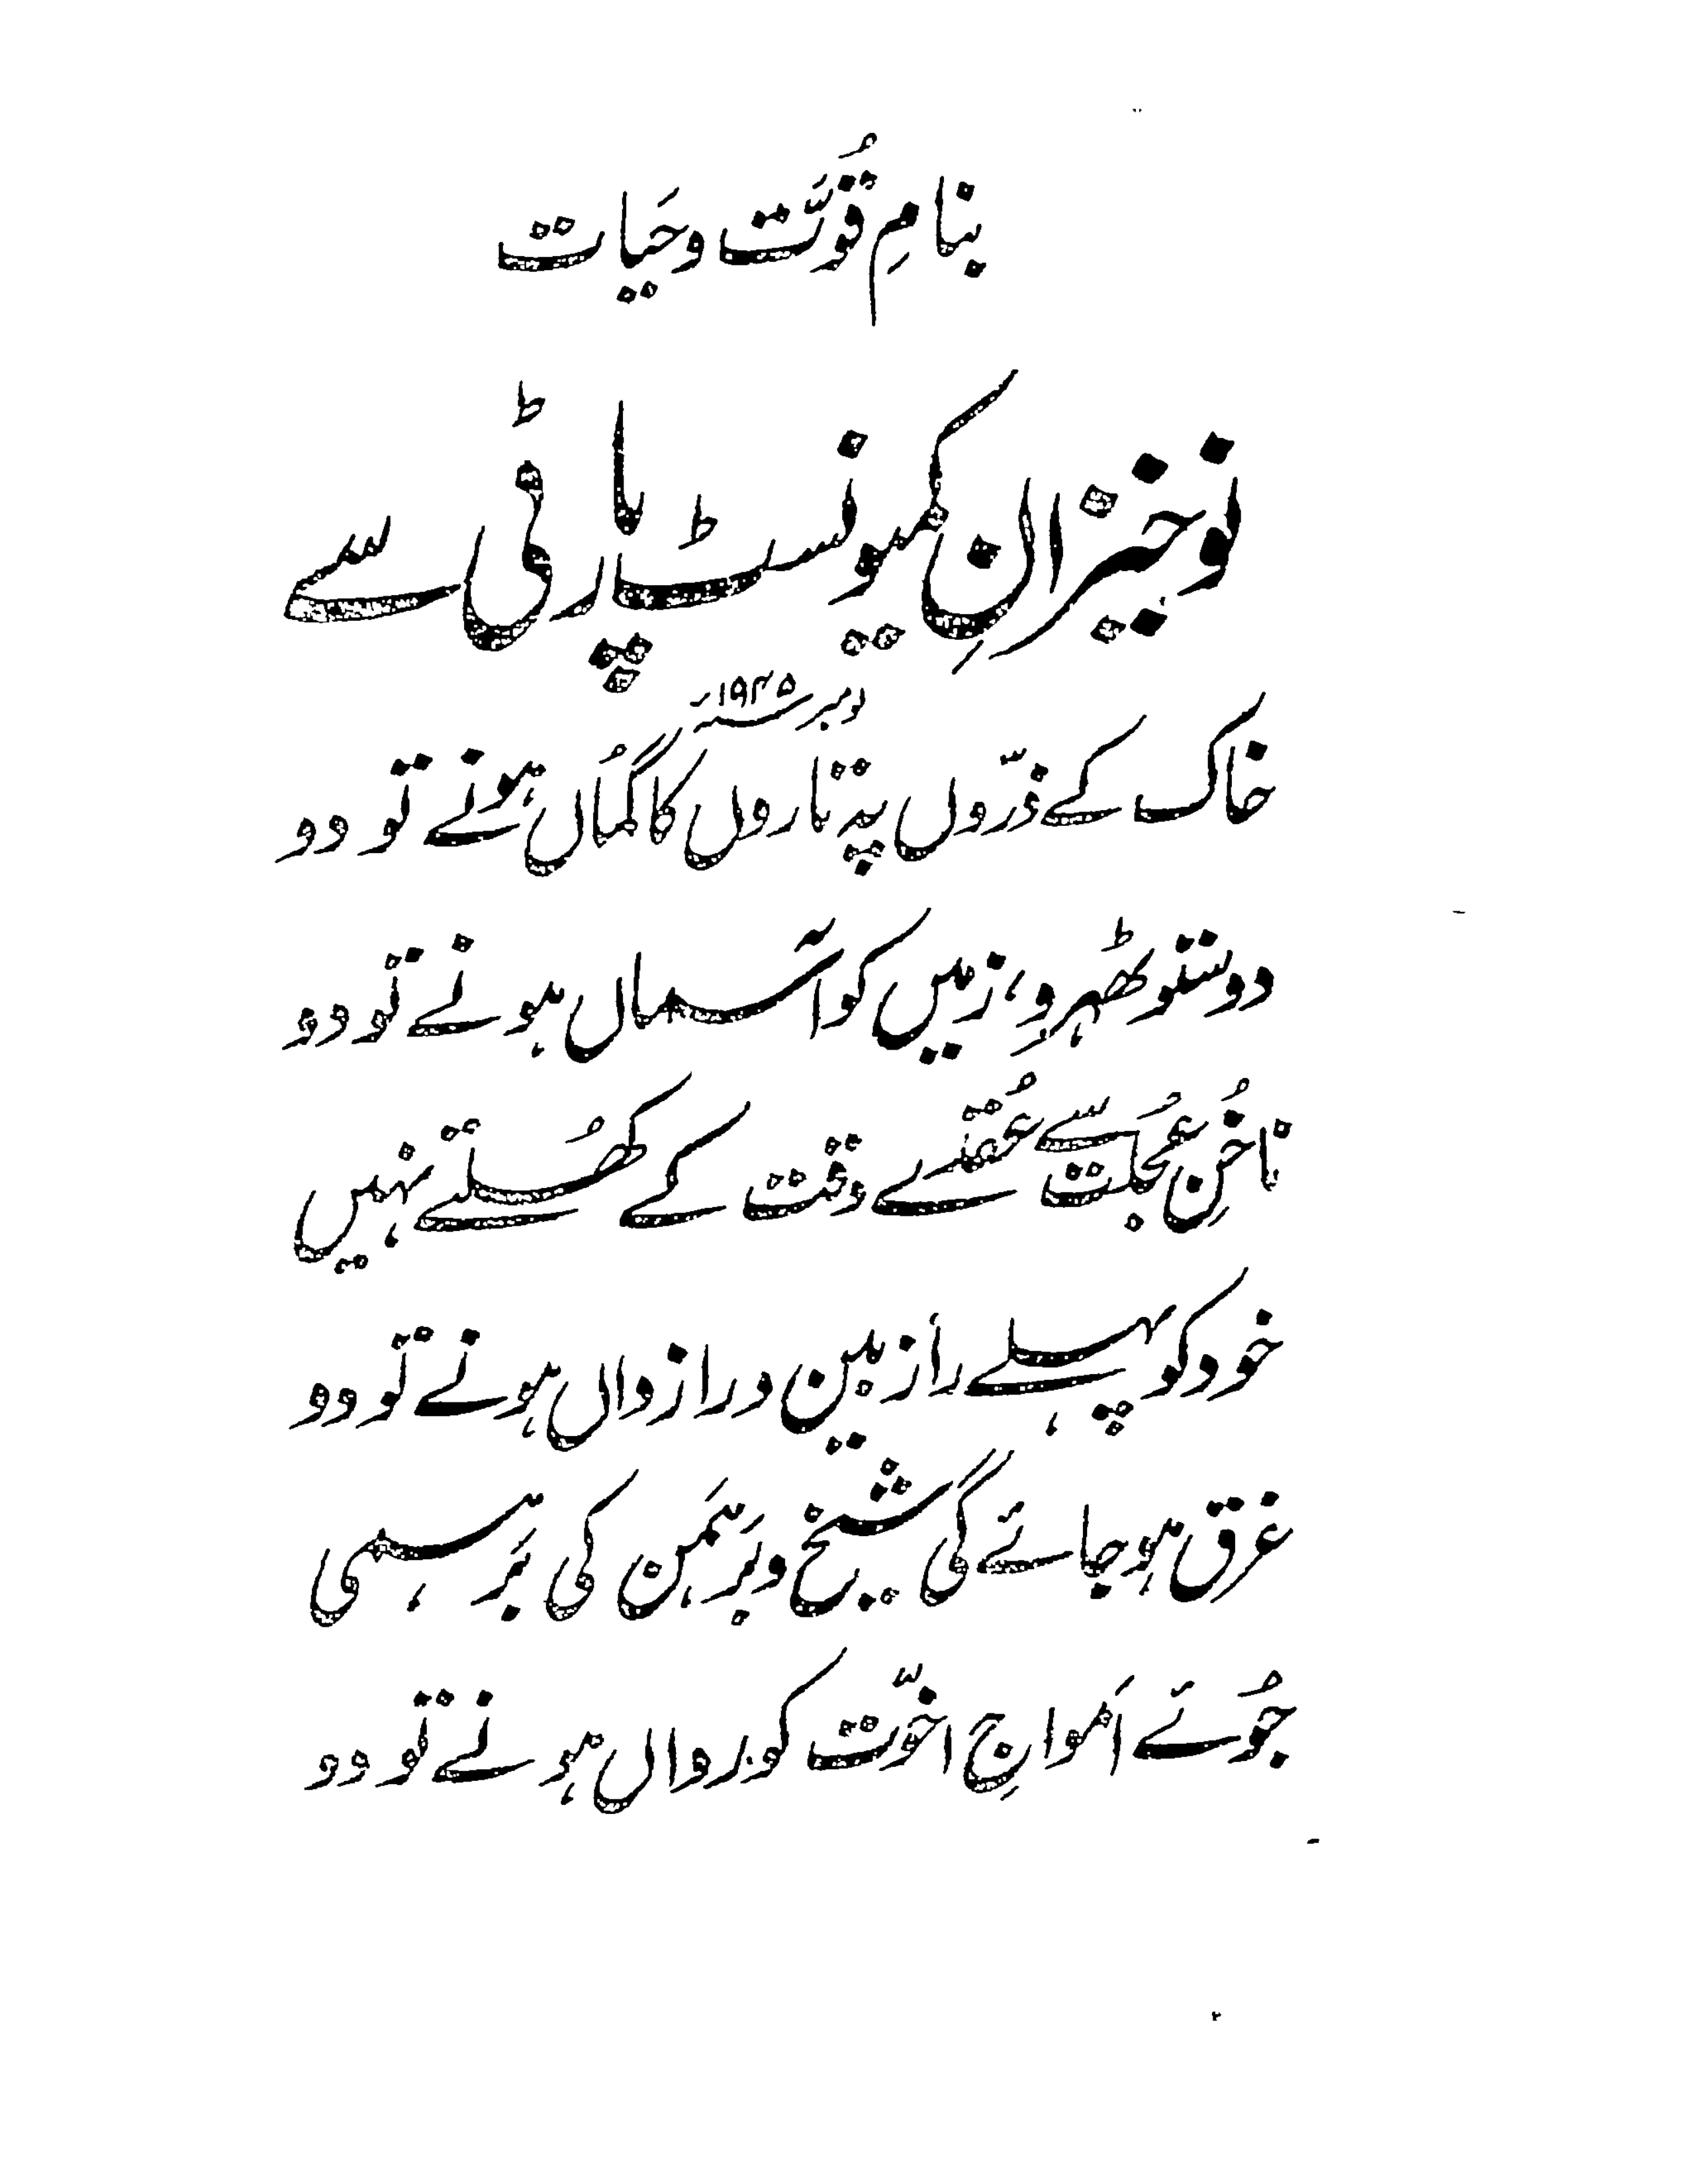 بنامِ قُوَّت و حَیات
نوخیزانِ کمیونسٹ پارٹی سے
۱۹۴۵ء
خاک کے ذرّوں پہ تاروں کا گُماں ہونے تو دو
دوستو ٹھہرو، زمیں کو آسماں ہونے تو دو
ناخُنِ عُجلت سے عُقدے وقت کے کھُلتے نہیں
خود کو پہلے رازبین و رازداں ہونے تو دو
غرق ہو جائے گی شیخ و بَرہَمَن کی بَرہمی
جُوئے اَمواجِ اخوّت کو رواں ہونے تو دو